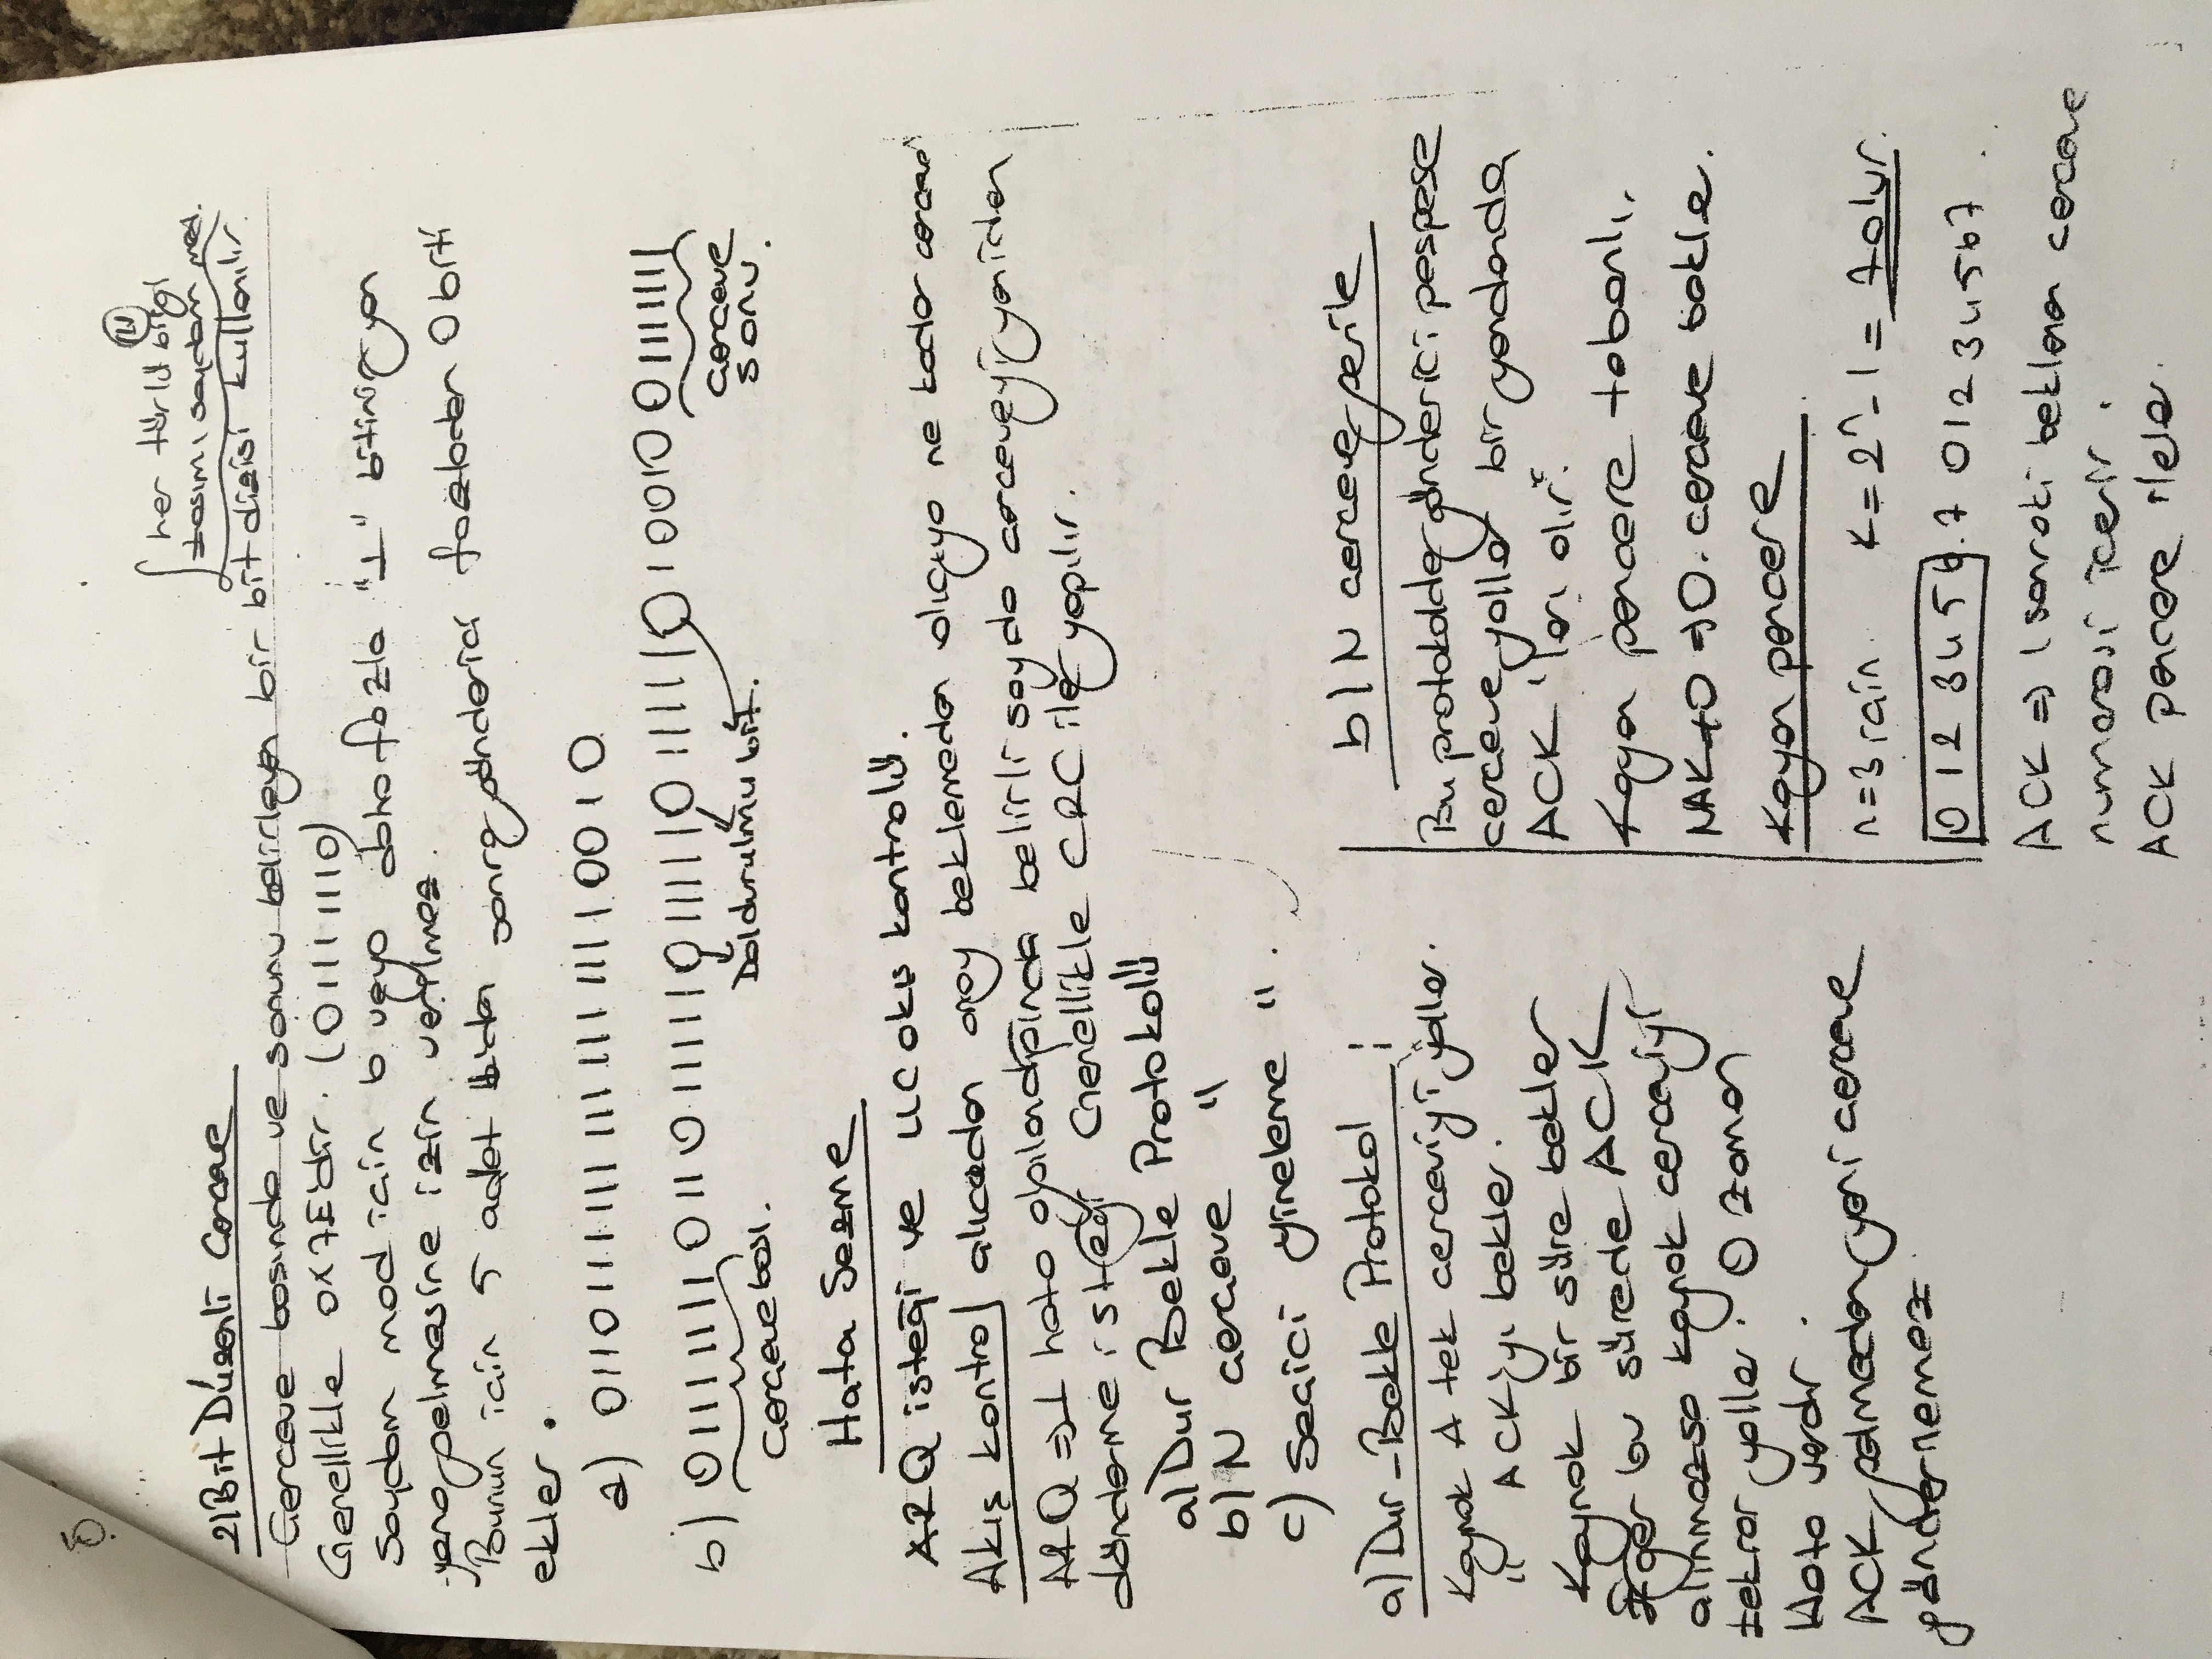 (4)
her türlü bilgi
taşımı saydam mod.
2) Bit Düzenli Çerçeve
Çerçeve başında ve sonunu belirleyen bir bit dizisi kullanılır.
Genellikle 0x7E'dir. (01111110)
Saydam mod için 6 veya daha fazla "1" bitinin yan
yana gelmesine izin verilmez.
Bunun için 5 adet 1'den sonra gönderici fazladan 0 biti
ekler.
a) 011011111111111111110010
b) 01111110 0110111110111110111110 10010 01111110
Çerçeve başı.
Doldurulmu bit.
Çerçeve
sonu.
Hata Sezme
ARQ isteği ve LLC akış kontrolü.
Akış kontrol alıcıdan onay beklemeden alıcıya ne kadar çerçeve
ARQ => 1 hata algılandığında belirli sayıda çerçeveyi yeniden
gönderme isteği Genellikle CRC ile yapılır.
a) Dur Bekle Protokolü
b) N çerçeve "
c) Seçici yineleme ".
a) Dur-Bekle Protokol :
Kaynak A tek çerçeviyi yollar.
" ACK'yı bekler.
Kaynak bir süre bekler
Eğer bu sürede ACK
alınmazsa kaynak çerçeviyi
tekrar yollar. O zaman
Hata vardır.
ACK gelmeden yeni çerçeve
gönderilemez
b) N çerçeve gerile
Bu protokolde gönderici peşpeşe
çerçeve yollar bir yandanda
ACK 'ları alır.
Kayan pencere tabanlı.
NAK+0 => 0. çerçeve bekle.
Kayan pencere
n=3 için k=2^n-1= 7 olur.
0 1 2 3 4 5 6. 7 0 1 2 3 4 5 6 7
ACK => 1 sonraki beklenen çerçeve
numarasi içerir.
ACK pencere ilele.